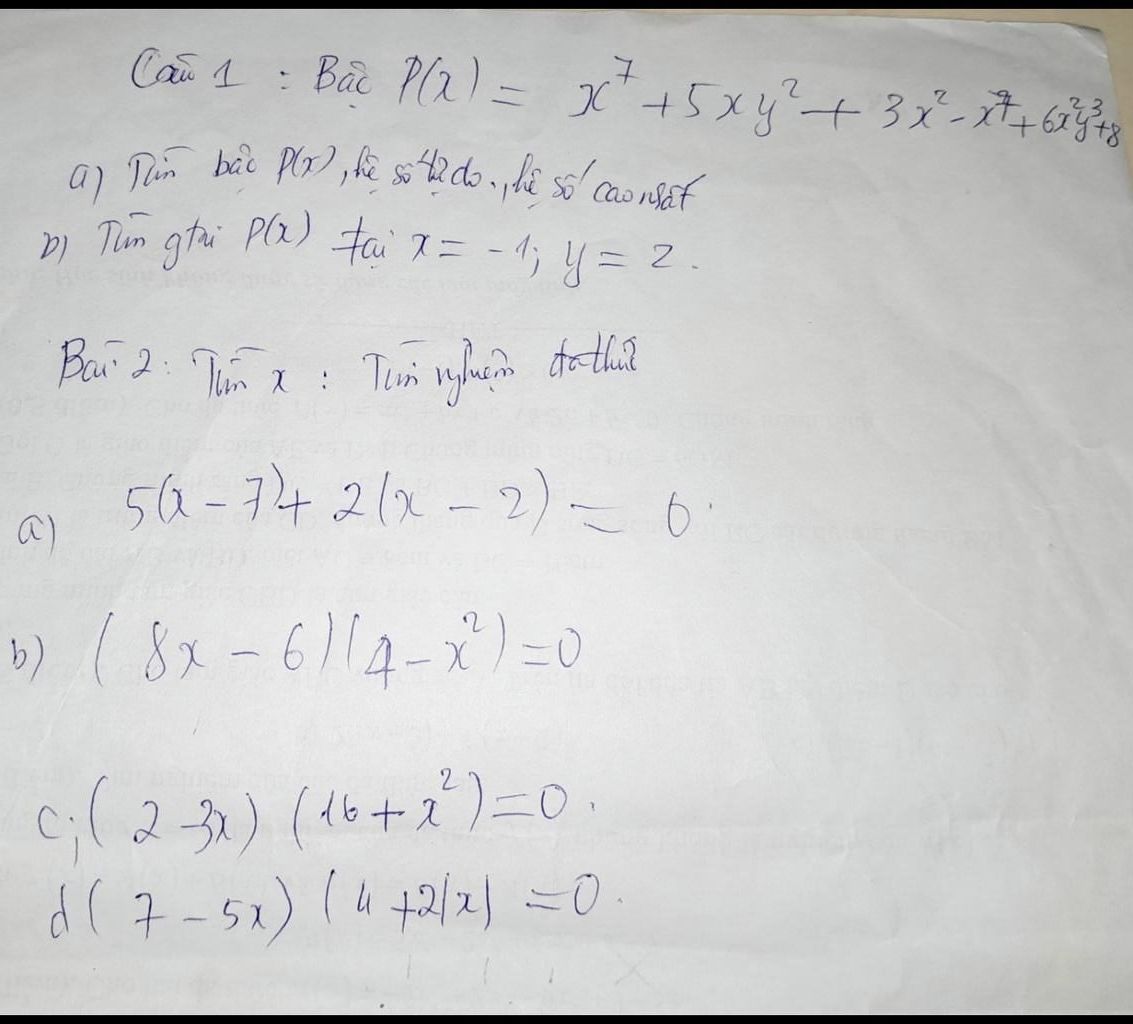 Câu 1 : Bậc P(x) = x⁷ + 5xy² + 3x² - x⁷ + 6x²y³ + 8
a) Tìm bậc P(x), hệ số tự do, hệ số cao nhất
b) Tìm gtrị P(x) tại x = -1; y = 2.
Bài 2: Tìm x : Tìm nghiệm đa thức
a) 5(x - 7) + 2(x - 2) = 0.
b) (8x - 6)(4 - x²) = 0
c, (2 - 3x) (16 + x²) = 0.
d (7 - 5x) (4 + 2|x| = 0.